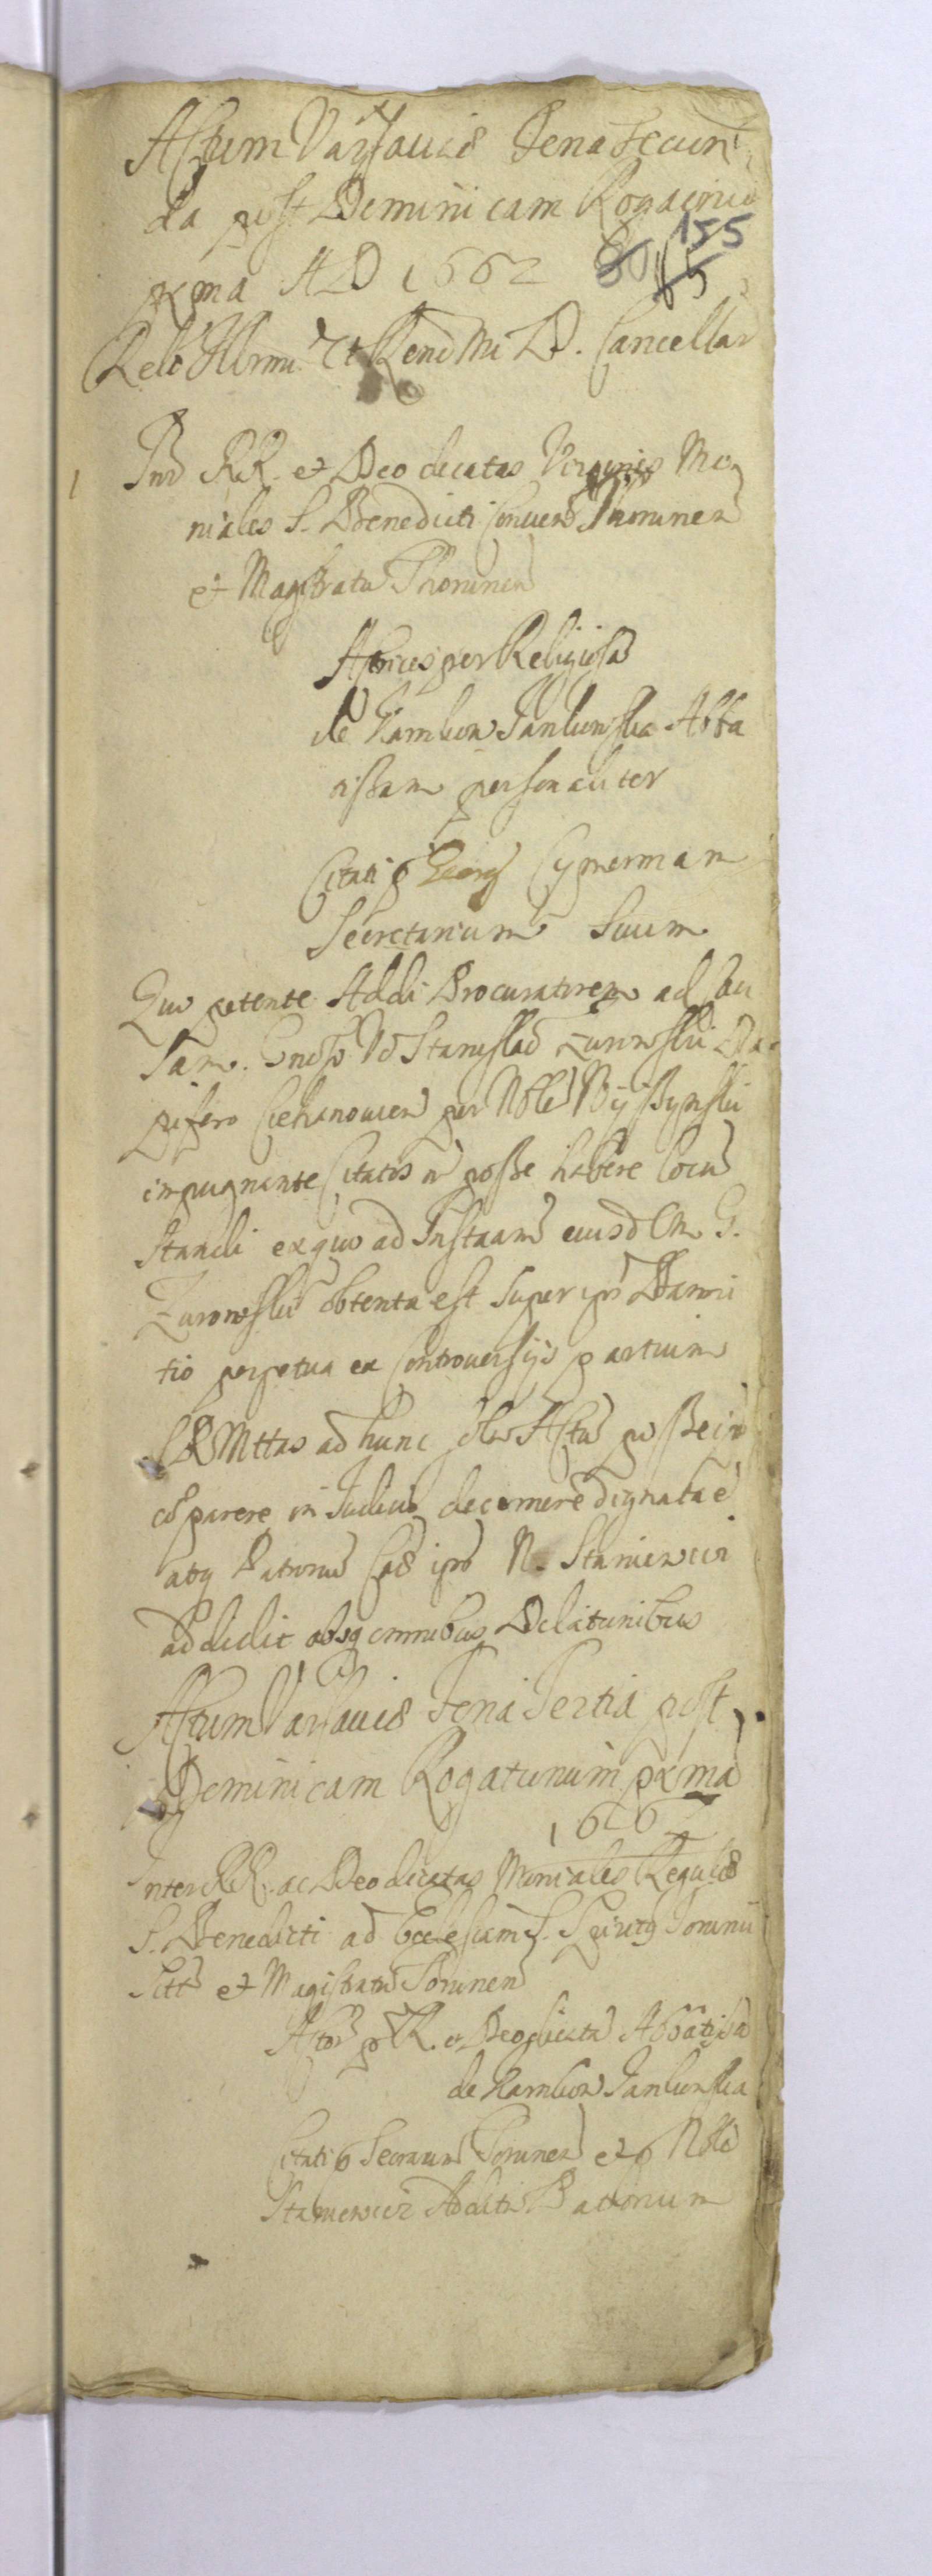 Actum Varsaviae Feria Secun
da post Dominicam Rogaonu
pxma AD 1662 80 65 155
Relo Illrmi Et Rendmi D. Cancellar
1 Int RR. et Deo dicatas Virgines Mo
niales S. Benedicti Conven Thorunen
et Magistratu Thorunen
Actrices per Religiosa
de Hambor Janbowska Abba
tissam personaliter
Citati p Georg Cymerman
Secretarium Suum
Quo petente Addi Procuratorem ad cau
sam. Gnoso Stanislao Zurowski Da
pifero Ciehanovien per Noble
impugnante Citatos n posse habere locu
standi ex quo ad Instaam eiusd G.
Zurowski obtenta est super ips Banni
tio perpetua ex Controversijs partium
SRMttas ad hunc Actu posse
coparere in Judicio decernere dignata e
atq Patronu ips N. Staniewicz
addidit absq omnibus Dilationibus
Actum Varsaviae Feria Tertia post
Dominicam Rogationum pxma
166
Inter RR. ac Deo dicatas Moniales Regulae
S. Benedicti ad Ecclesiam S. Spiritq Torunii
Sitt et Magistratu Torunen
Actor p R. et Deo dicata Abbatissa
de Hambor Janbowska
Citati p Secretariu Torunen et p Noble
Staniewicz Additu Patronum